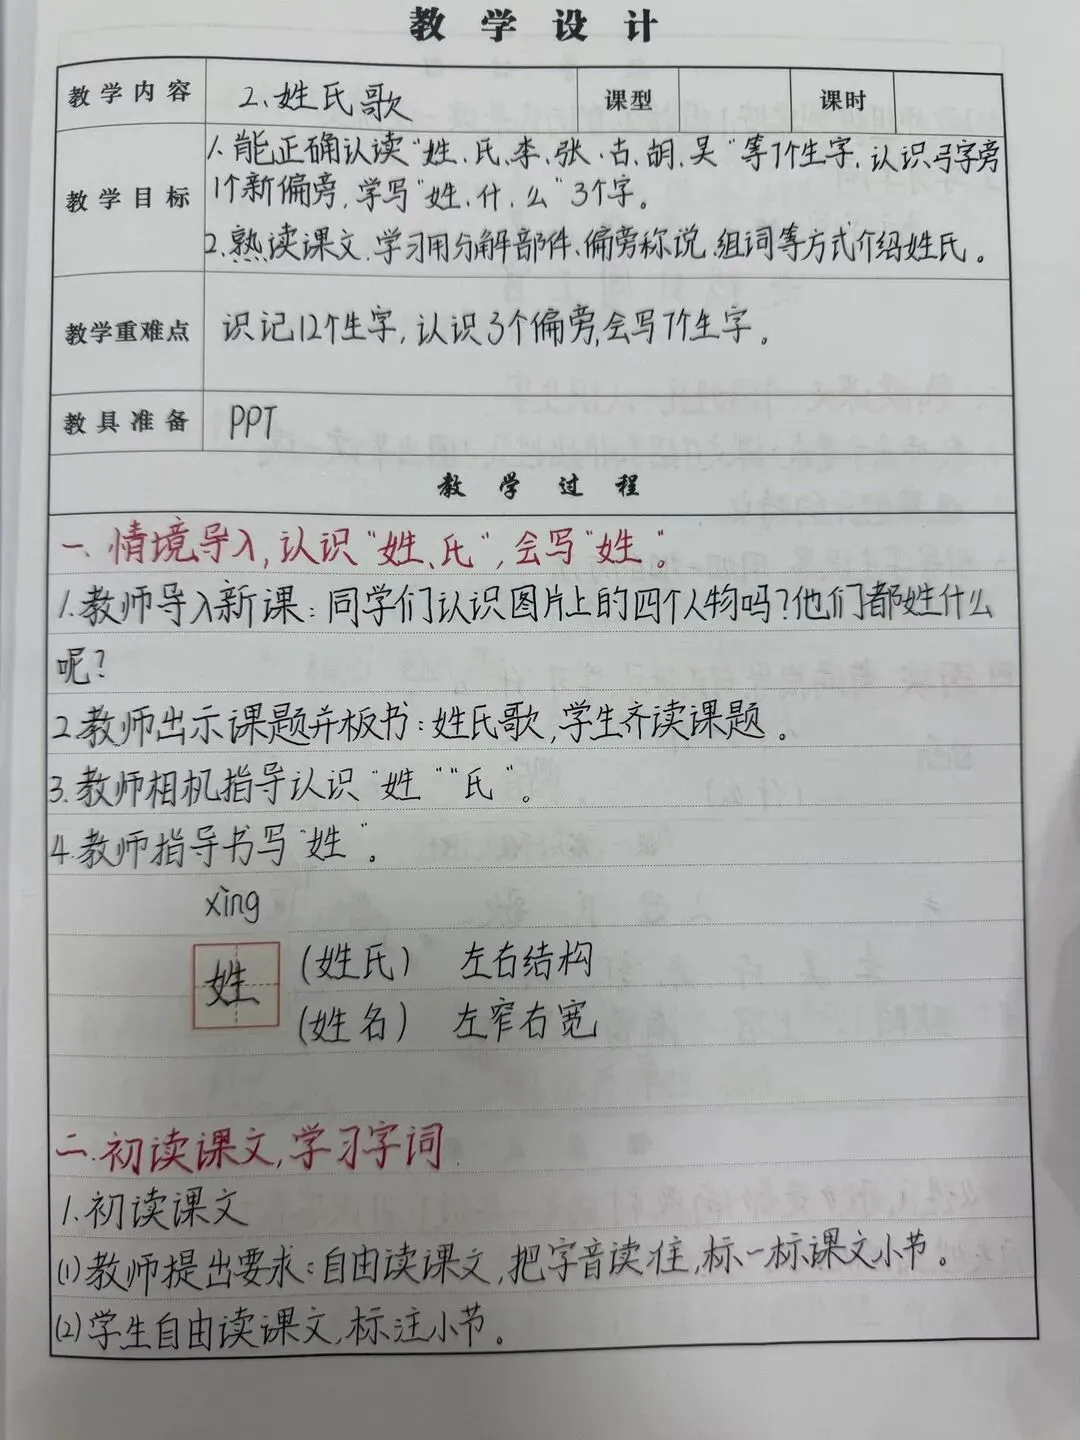 教学设计
教学内容 2、姓氏歌 课型 课时
教学目标
1、能正确认读“姓、氏、李、张、古、胡、吴”等7个生字,认识弓字旁
1个新偏旁,学写“姓、什、么”3个字。
2.熟读课文,学习用分解部件、偏旁称说、组词等方式介绍姓氏。
教学重难点 识记12个生字,认识3个偏旁,会写7个生字。
教具准备 PPT
教学过程
一、情境导入,认识“姓、氏”,会写“姓”。
1.教师导入新课:同学们认识图片上的四个人物吗?他们都姓什么
呢?
2.教师出示课题并板书:姓氏歌,学生齐读课题。
3.教师相机指导认识“姓”“氏”。
4.教师指导书写“姓”。
xìng
姓 (姓氏) 左右结构
(姓名) 左窄右宽
二.初读课文,学习字词.
1.初读课文
(1)教师提出要求:自由读课文,把字音读准,标一标课文小节。
(2)学生自由读课文,标注小节。